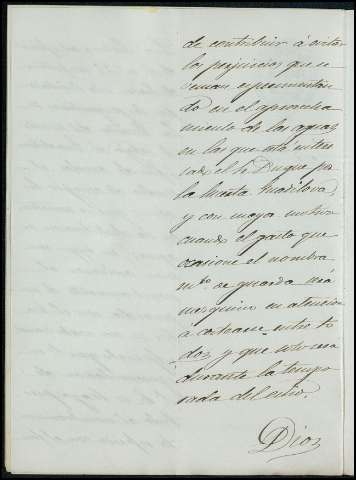 de contribuir á evitar
los perjuicios que se
venian esperimentan
do en el aprovecha
miento de las aguas
en las que está intere
sado el S. Duque por
la huerta
y con mayor motivo
cuando el gasto que
ocasione el nombra
m.to de guarda será
mesquino en atencion
a costearse entre to
dos, y que solo será
durante la tempo
rada del estio.
Dios